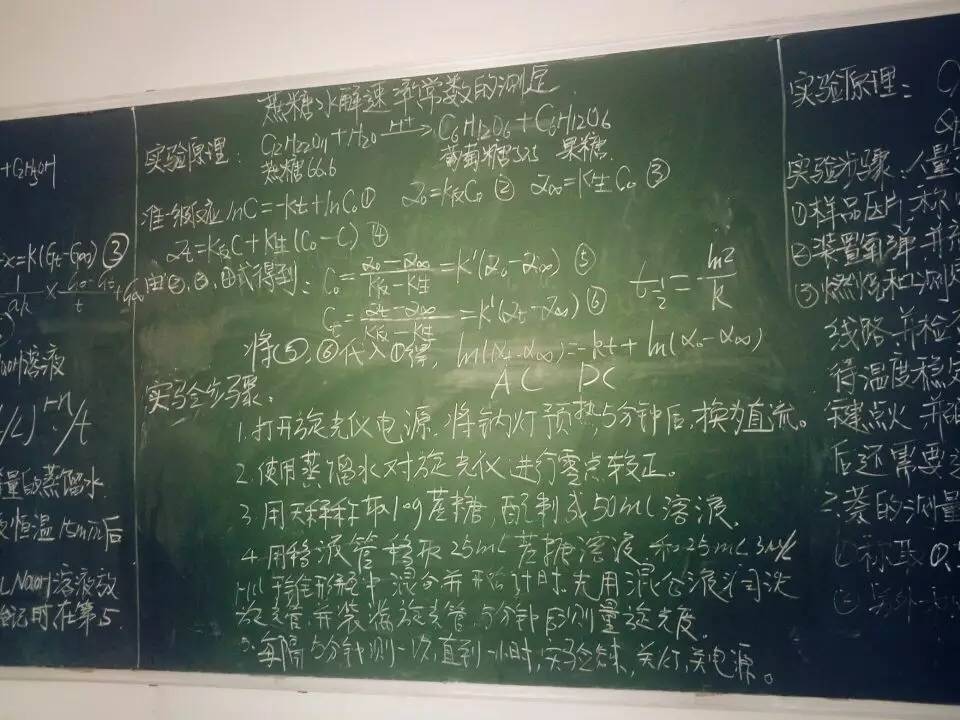 +C2H5OH
-x=K(Gt-G∞) ③
溶液
量的蒸馏水
恒温15min后
NaOH溶液放
记时在第5
蔗糖水解速率常数的测定
实验原理: C12H22O11+H2O H+→ C6H12O6+C6H12O6
蔗糖66.6 葡萄糖52.5 果糖
准一级反应 lnC=-Kt+lnC0① α0=K反C0 ② α∞=K生C0 ③
αt=K反C+K生(C0-C) ④
由②,③,④式得到: C0=α0-α∞/K反-K生=K'(α0-α∞) ⑤ t1/2=ln2/k
Ct=αt-α∞/K反-K生=K'(αt-α∞) ⑥
将⑤,⑥代入①得, ln(αt-α∞)=-kt+ln(α0-α∞)
实验步骤: AC DC
1.打开旋光仪电源,将钠灯预热,5分钟后,换为直流。
2.使用蒸馏水对旋光仪进行零点较正。
3.用天秤称取10g蔗糖,配制成50mL溶液。
4.用移液管移取25mL蔗糖溶液和25mL3M
HCl于锥形瓶中混合并开始计时,先用混合液润洗
旋光管,并装满旋光管,5分钟后测量旋光度。
5.每隔5分钟测一次,直到一小时,实验结束,关灯,关电源。
实验原理:
实验步骤:
①样品压片:称
②装置氧弹,并
③燃烧和测
线路并检
待温度稳定
点火,并
后还需要
二、萘的测量
①称取0.
②另外